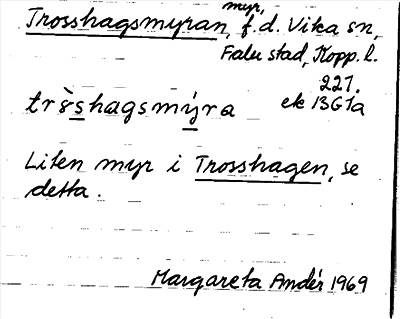 Trosshagsmyran, myr, f.d. Vika sn,
Falu stad, Kopp. l.
221.
tròshagsmýra ek 13G1a
Liten myr i Trosshagen, se
detta.
Margareta Andér 1969